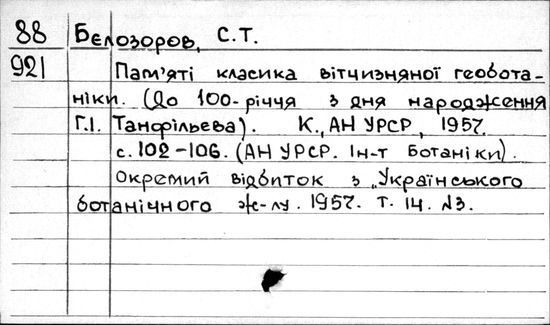 88 Бєлозоров, С.Т.
921 Пам'яті класика вітчизняної геобота-
ніки. (До 100-річчя з дня народження
Г.І. Танфільєва). К., АН УРСР, 1957.
с. 102-106. (АН УРСР. Ін-т Ботаніки).
Окремий відбиток з „Українського
ботанічного ж-лу. 1957. Т. 14. №3.